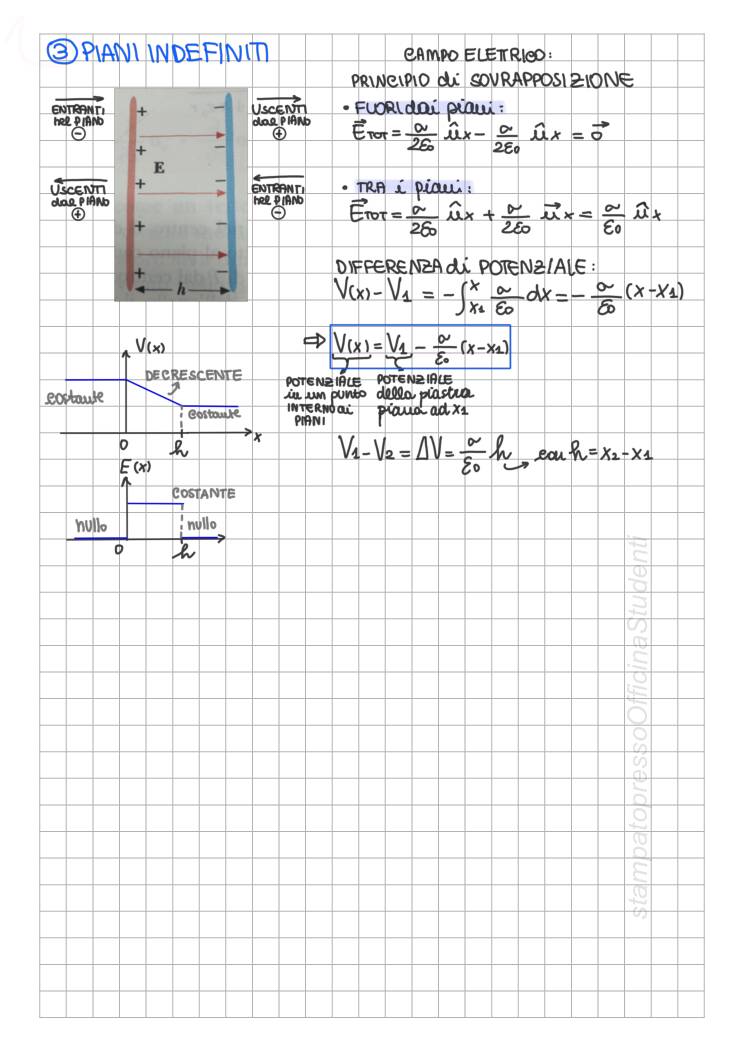 ③ PIANI INDEFINITI
ENTRANTI
nel PIANO
⊖
USCENTI
dal PIANO
⊕
+ + + + +
− − − − −
E
h
USCENTI
dal PIANO
⊕
ENTRANTI
nel PIANO
⊖
CAMPO ELETTRICO:
PRINCIPIO di SOVRAPPOSIZIONE
• FUORI dai piani:
E⃗TOT = σ/2ε0 ûx − σ/2ε0 ûx = 0⃗
• TRA i piani:
E⃗TOT = σ/2ε0 ûx + σ/2ε0 u⃗x = σ/ε0 ûx
DIFFERENZA di POTENZIALE:
V(x) − V1 = −∫x1x σ/ε0 dx = − σ/ε0 (x−x1)
⇨ V(x) = V1 − σ/ε0 (x−x1)
POTENZIALE
in un punto
INTERNO ai
PIANI
POTENZIALE
della piastra
piana ad x1
V1 − V2 = ΔV = σ/ε0 h → con h = x2 − x1
V(x)
DECRESCENTE
costante
costante
0
h
x
E(x)
COSTANTE
nullo
nullo
0
h
stampatopressoOfficinaStudenti